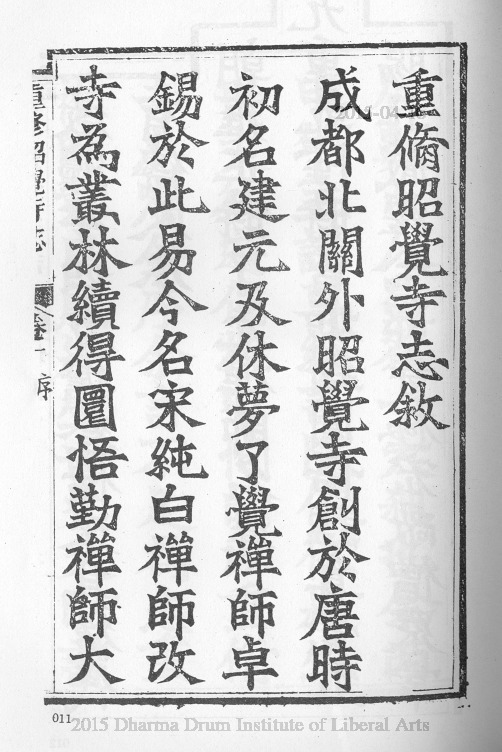 重脩昭覺寺志敘
成都北關外昭覺寺創於唐時
初名建元及休夢了覺禪師卓
錫於此易今名宋純白禪師改
寺為叢林續得圜悟勤禪師大
重修昭覺寺志 卷一 序
011
2015 Dharma Drum Institute of Liberal Arts